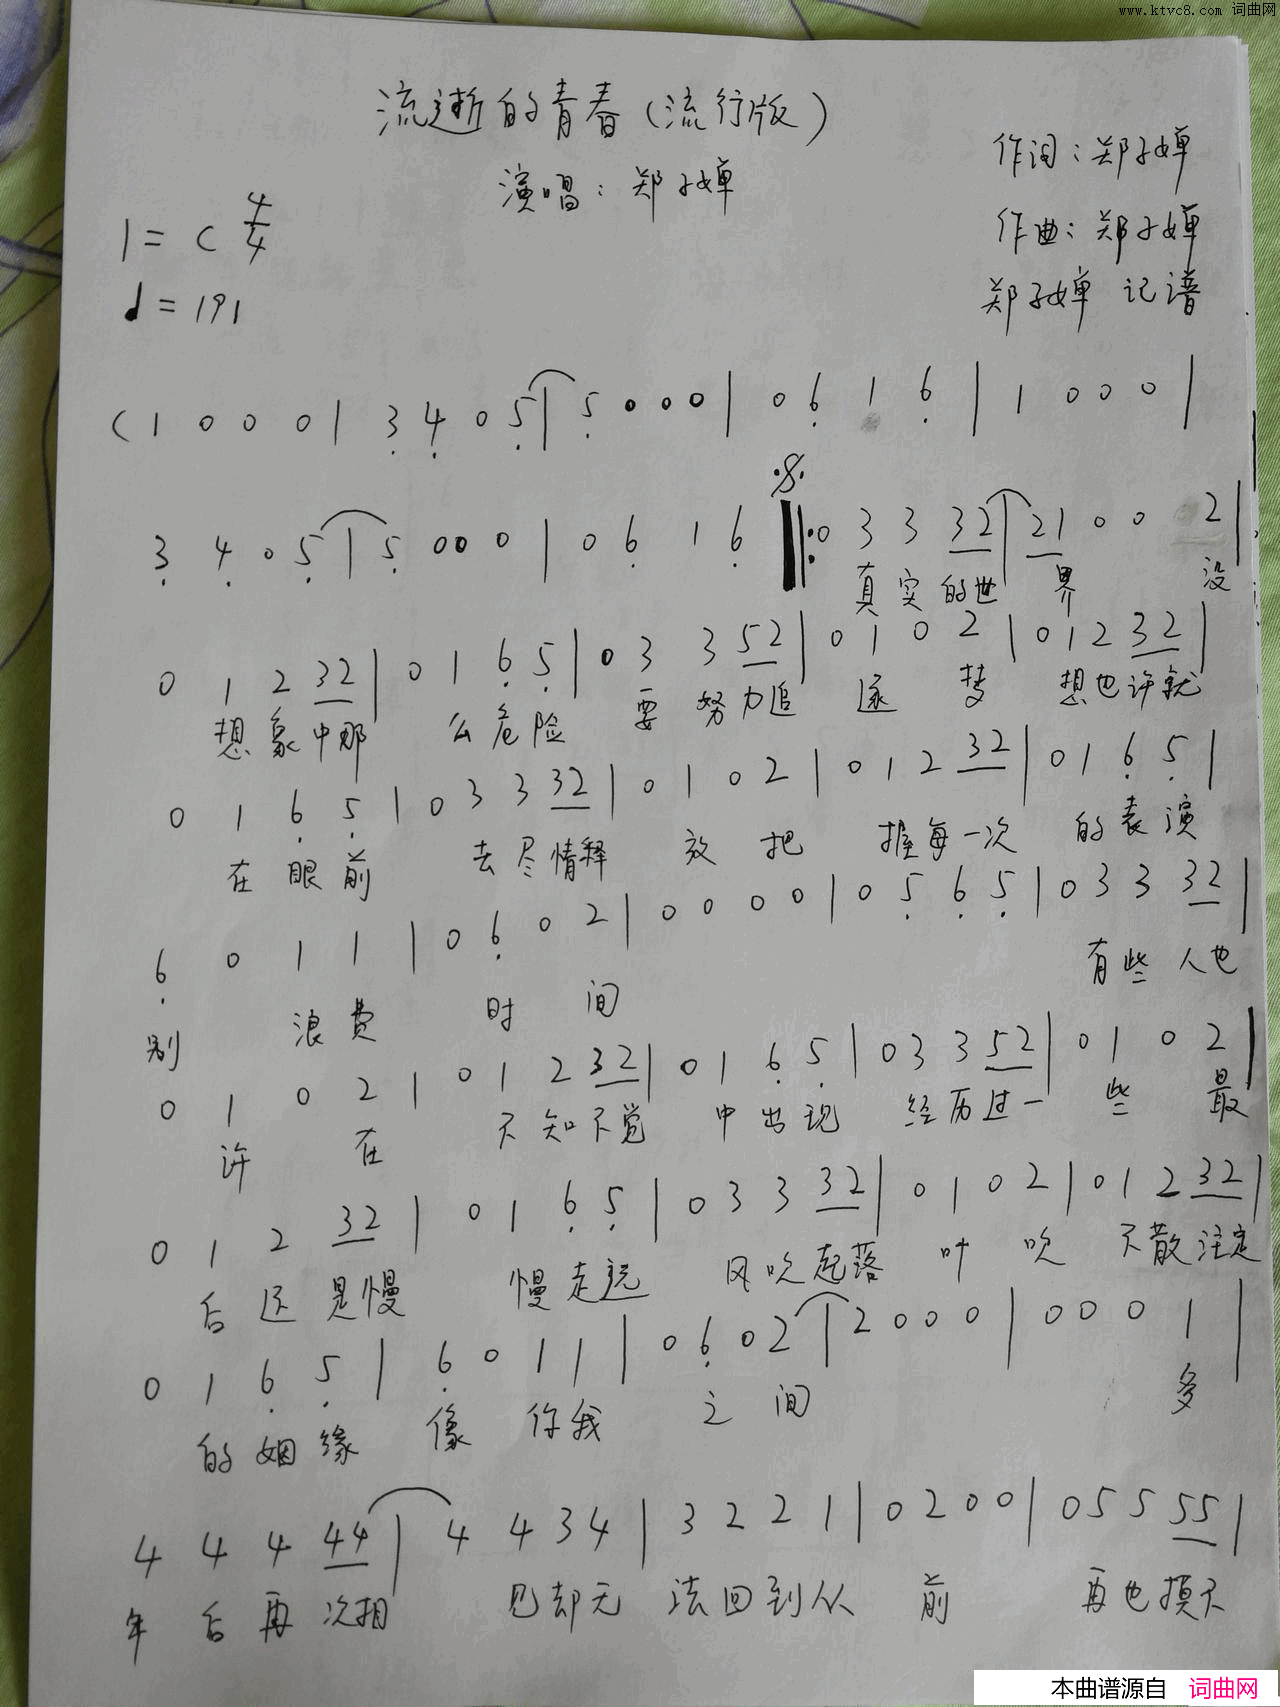 www.ktvc8.com 词曲网
流逝的青春(流行版)
作词:郑子婵
演唱:郑子婵
1=C 4/4
作曲:郑子婵
♩=191
郑子婵 记谱
(1 0 0 0 | 3 4 0 5 | 5 0 0 0 | 0 6 1 6 | 1 0 0 0 |
3 4 0 5 | 5 0 0 0 | 0 6 1 6 |: 0 3 3 32 | 21 0 0 2 |
真 实 的世 界 没
0 1 2 32 | 0 1 6 5 | 0 3 3 52 | 0 1 0 2 | 0 1 2 32 |
想 象 中那 么 危 险 要 努 力追 逐 梦 想 也 许就
0 1 6 5 | 0 3 3 32 | 0 1 0 2 | 0 1 2 32 | 0 1 6 5 |
在 眼 前 去 尽 情释 放 把 握 每 一次 的 表 演
6 0 1 1 | 0 6 0 2 | 0 0 0 0 | 0 5 6 5 | 0 3 3 32 |
别 浪 费 时 间 有 些 人也
0 1 0 2 | 0 1 2 32 | 0 1 6 5 | 0 3 3 52 | 0 1 0 2 |
许 在 不 知 不觉 中 出 现 经 历 过一 些 最
0 1 2 32 | 0 1 6 5 | 0 3 3 32 | 0 1 0 2 | 0 1 2 32 |
后 还 是慢 慢 走 远 风 吹 起落 叶 吹 不 散 注定
0 1 6 5 | 6 0 1 1 | 0 6 0 2 | 2 0 0 0 | 0 0 0 1 |
的 姻 缘 像 你 我 之 间 多
4 4 4 44 | 4 4 3 4 | 3 2 2 1 | 0 2 0 0 | 0 5 5 55 |
年 后 再 次相 见 却 无 法 回 到 从 前 再 也 摸不
本曲谱源自 词曲网